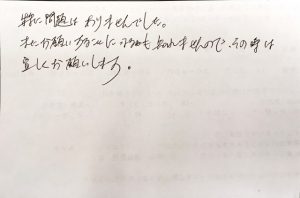 特に問題はありませんでした。
またお願いすることになるかも知れませんので、その時は
宜しくお願いします。